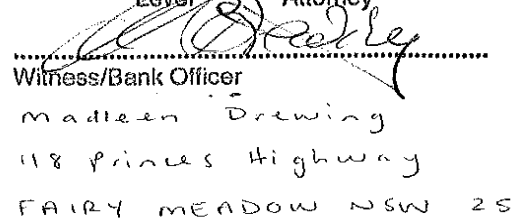 Level Attorney
Witness/Bank Officer
Madleen Drewing
118 Princes Highway
FAIRY MEADOW NSW 25